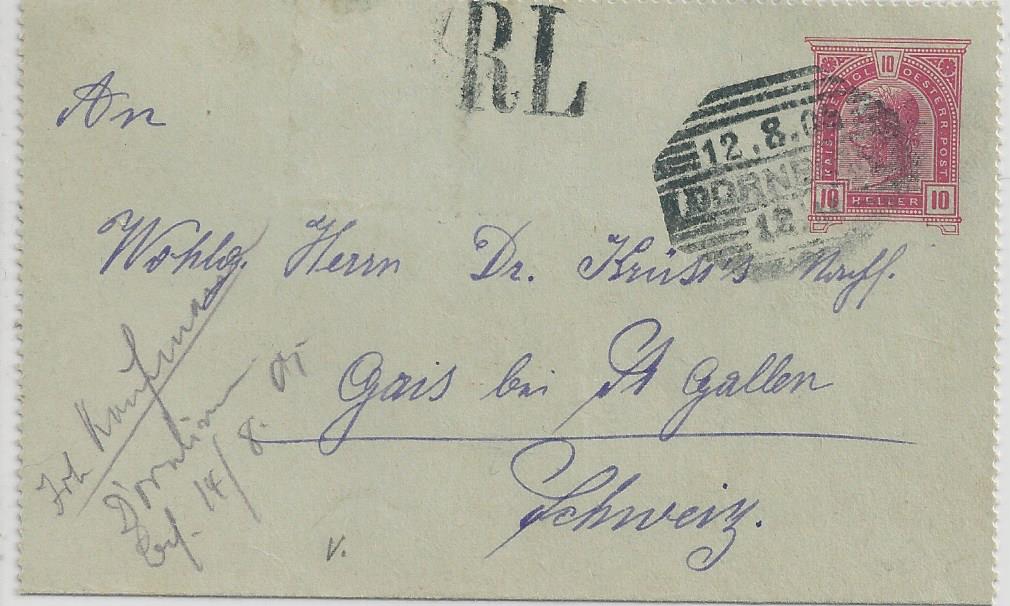 RL
KAIS. KOENIGL. OESTERR. POST
10
10 HELLER 10
12.8.0
DORNB
12.
An
Wohlg. Herrn Dr. Krüsi's Nachf.
Gais bei St Gallen
Schweiz.
Kaufmann
Dornbirn
14/8.
v.